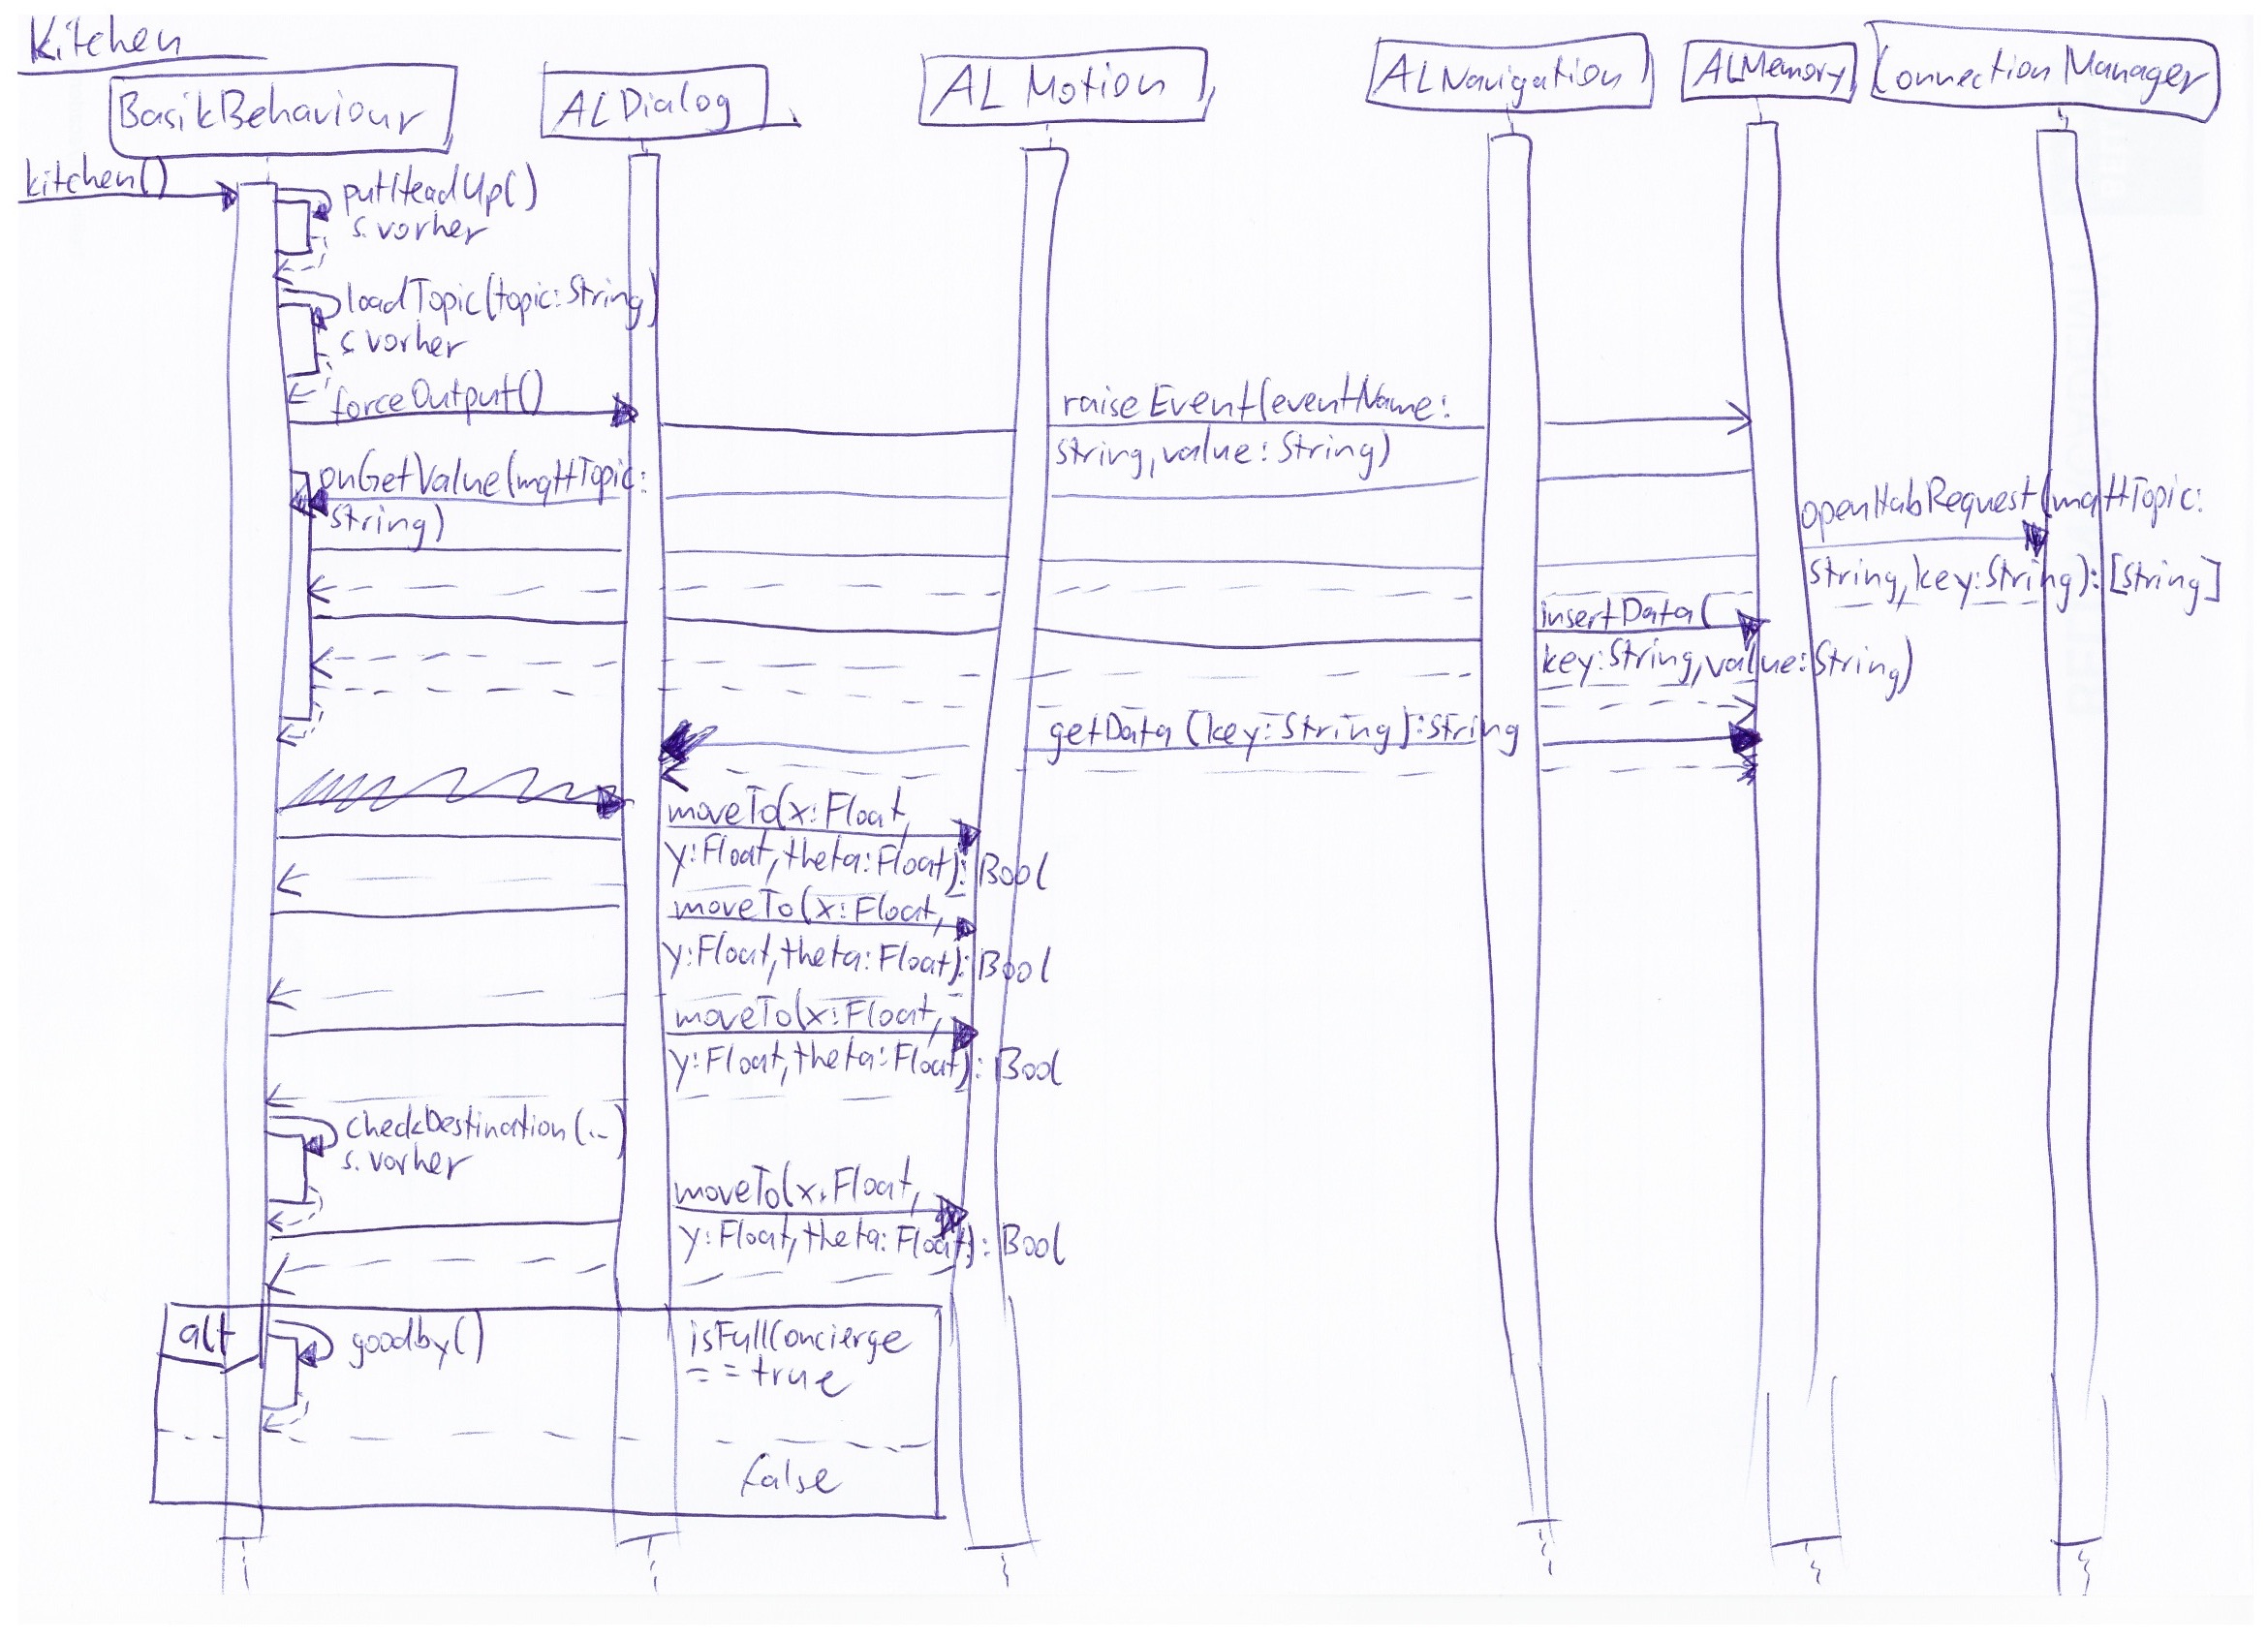 Kitchen
BasikBehaviour
ALDialog
AL Motion
ALNavigation
ALMemory
Connection Manager
kitchen()
putHeadUp()
s. vorher
loadTopic(topic:String)
s vorher
forceOutput()
raiseEvent(eventName:
String, value: String)
onGetValue(mqttTopic:
String)
openHabRequest(mqttTopic:
String, key:String): [String]
insertData(
key:String, value:String)
getData (key: String): String
moveTo(x:Float,
y:Float, theta:Float): Bool
moveTo(x:Float,
y:Float, theta:Float): Bool
moveTo(x:Float,
y:Float, theta:Float): Bool
checkDestination(..)
s. vorher
moveTo(x:Float,
y:Float, theta:Float): Bool
alt
goodby()
isFullConcierge
==true
false